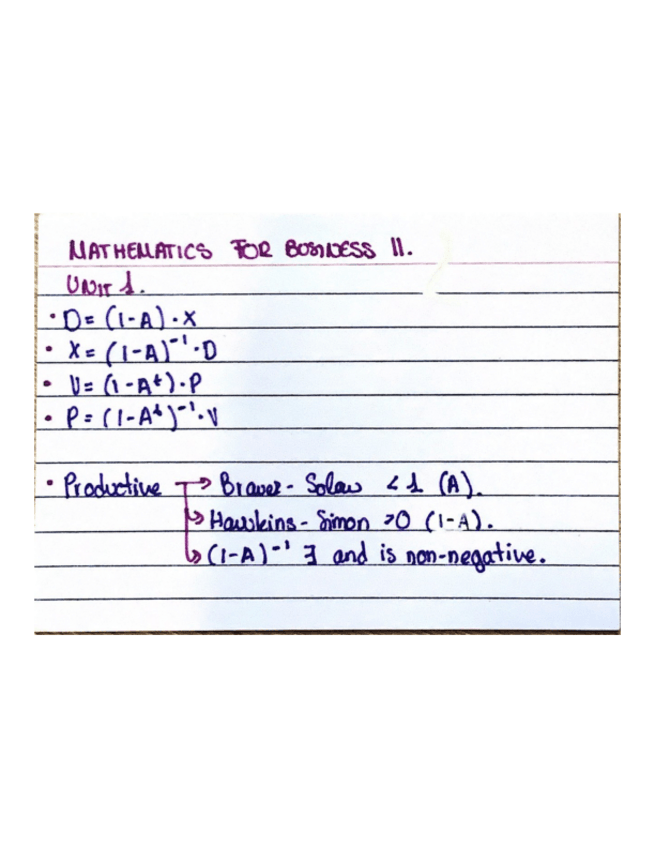 MATHEMATICS FOR BUSINESS II.
UNIT 1.
• D = (I-A) · X
• X = (I-A)⁻¹ · D
• V = (I-Aᵗ) · P
• P = (I-Aᵗ)⁻¹ · V
• Productive → Brauer - Solow < 1 (A).
→ Hawkins - Simon >0 (I-A).
→ (I-A)⁻¹ ∃ and is non-negative.